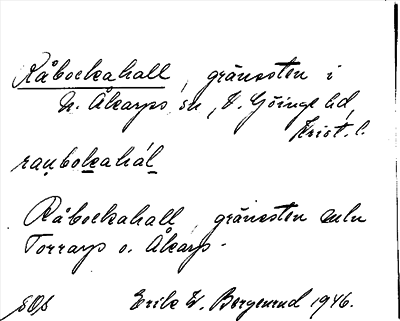 Råbockahall, gränssten i
N. Åkarps sn, V. Göinge hd,
Krist. l.
raụbokahál
Råbockahall, gränssten mln
Torrarp o. Åkarp.
Erik W. Bergenrud 1946.